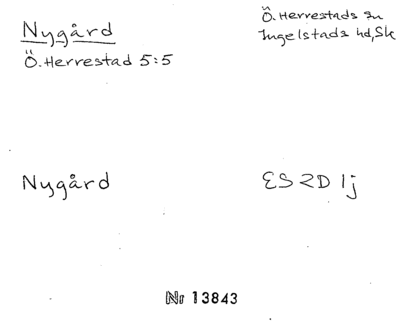 Nygård
Ö. Herrestad 5:5
Ö. Herrestads sn
Ingelstads hd, Sk
Nygård
ES 2D 1j
Nr 13843